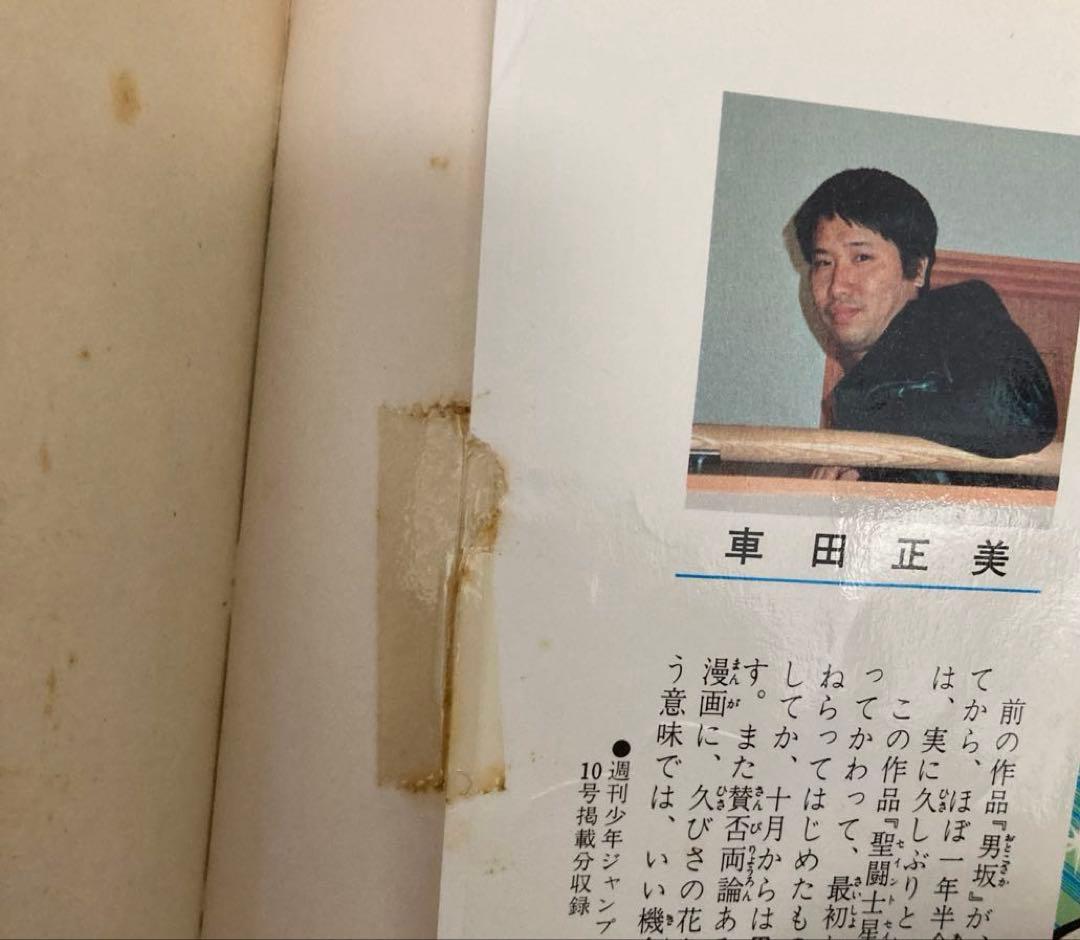 車田正美
前の作品『男坂』が
てから、ほぼ一年半
は、実に久しぶりと
この作品『聖闘士星
ってかわって、最初
ねらってはじめたも
してか、十月からは
す。また賛否両論あ
漫画に、久びさの花
う意味では、いい機
●週刊少年ジャンプ
10号掲載分収録